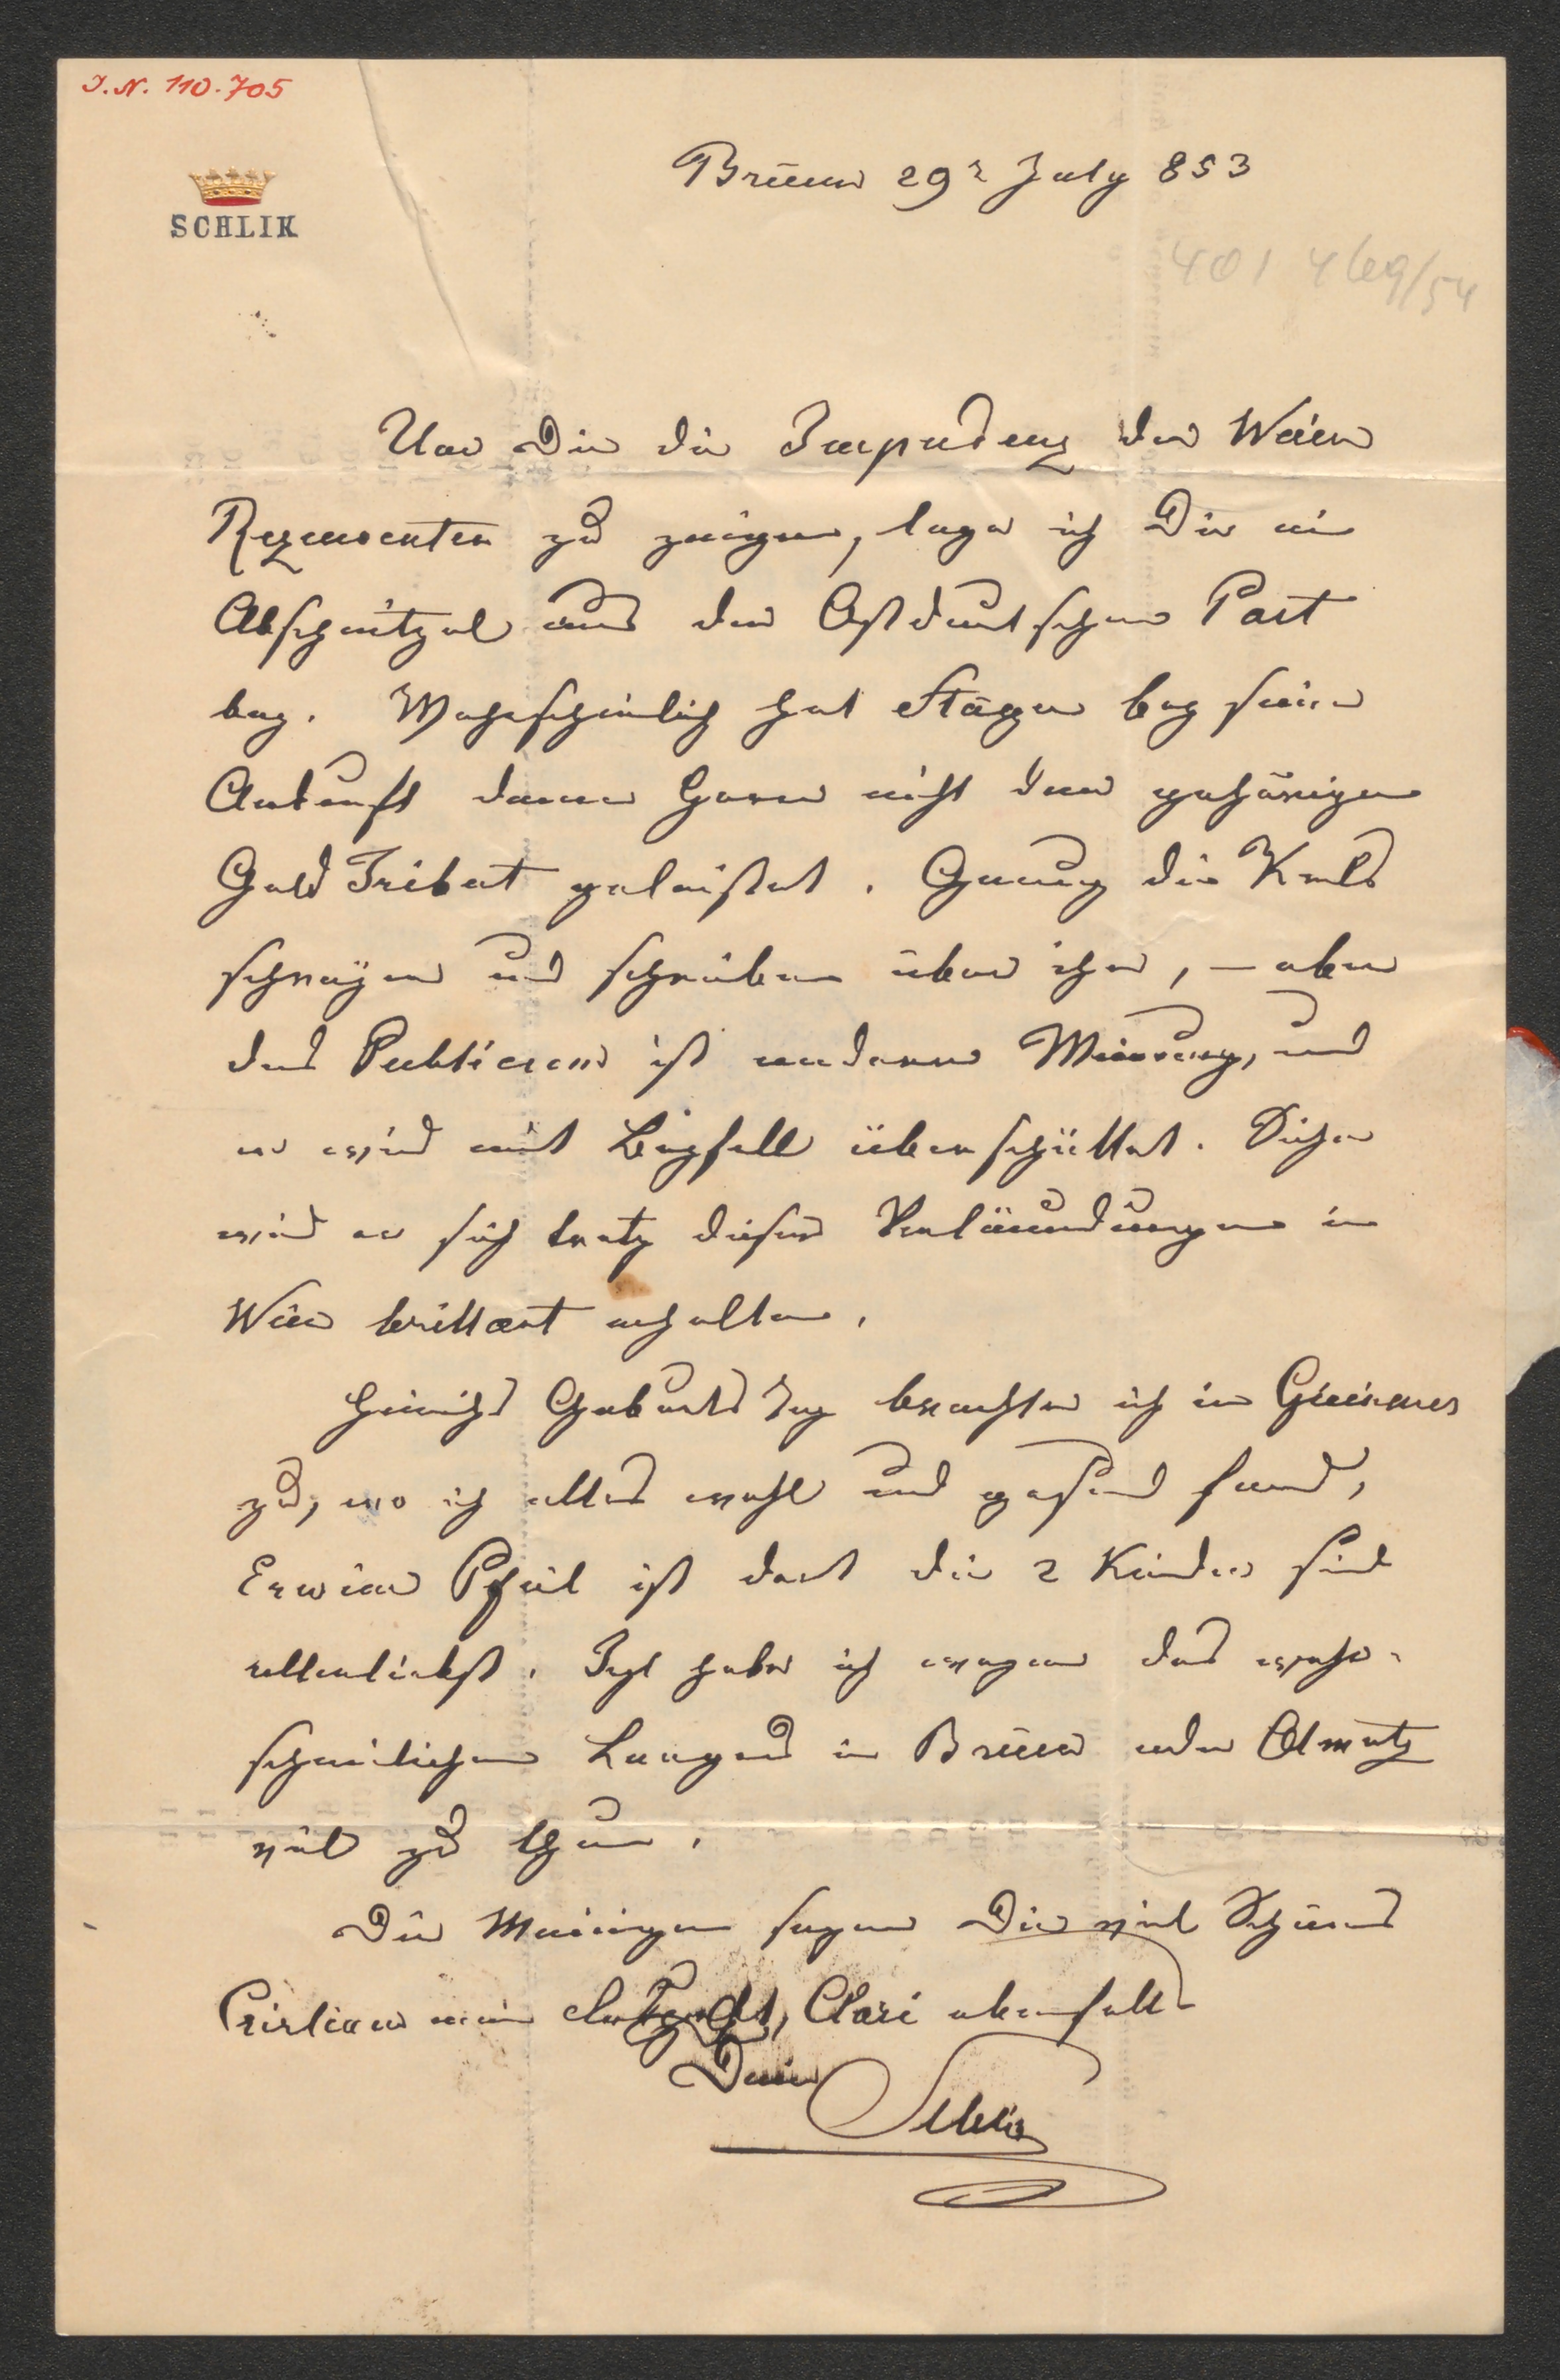 I. N. 110.705
SCHLIK
Brünn 29r July 853
401 469/54
Um Dir die Impudenz der Wien
Rezensenten zu zeigen, lege ich Dir ein
Abschnitzel aus der Ostdeutschen Post
bey. Wahrscheinlich hat Stäger bey seiner
Ankunft denen Herrn nicht den gehörigen
Geld Tribut geleistet. Genug die Kerls
schreyen und schreiben über ihn, – aber
das Publicum ist anderer Meinung, und
er wird mit Beyfall überschüttet. Sicher
wird er sich trotz dieser Verläumdungen in
Wien brillant erhalten.
Heinichs Geburts Tag brachte ich in
zu, wo ich alles wohl und gesund fand,
Erwein Pfeil ist dort die 2 Kinder sind
allerliebst. Izt habe ich wegen des wahr-
scheinlichen Lagers in Brünn oder Olmütz
viel zu thun.
Die Meinigen sagen Dir viel Schönes
mein Clari ebenfalls
Dein
Schlik